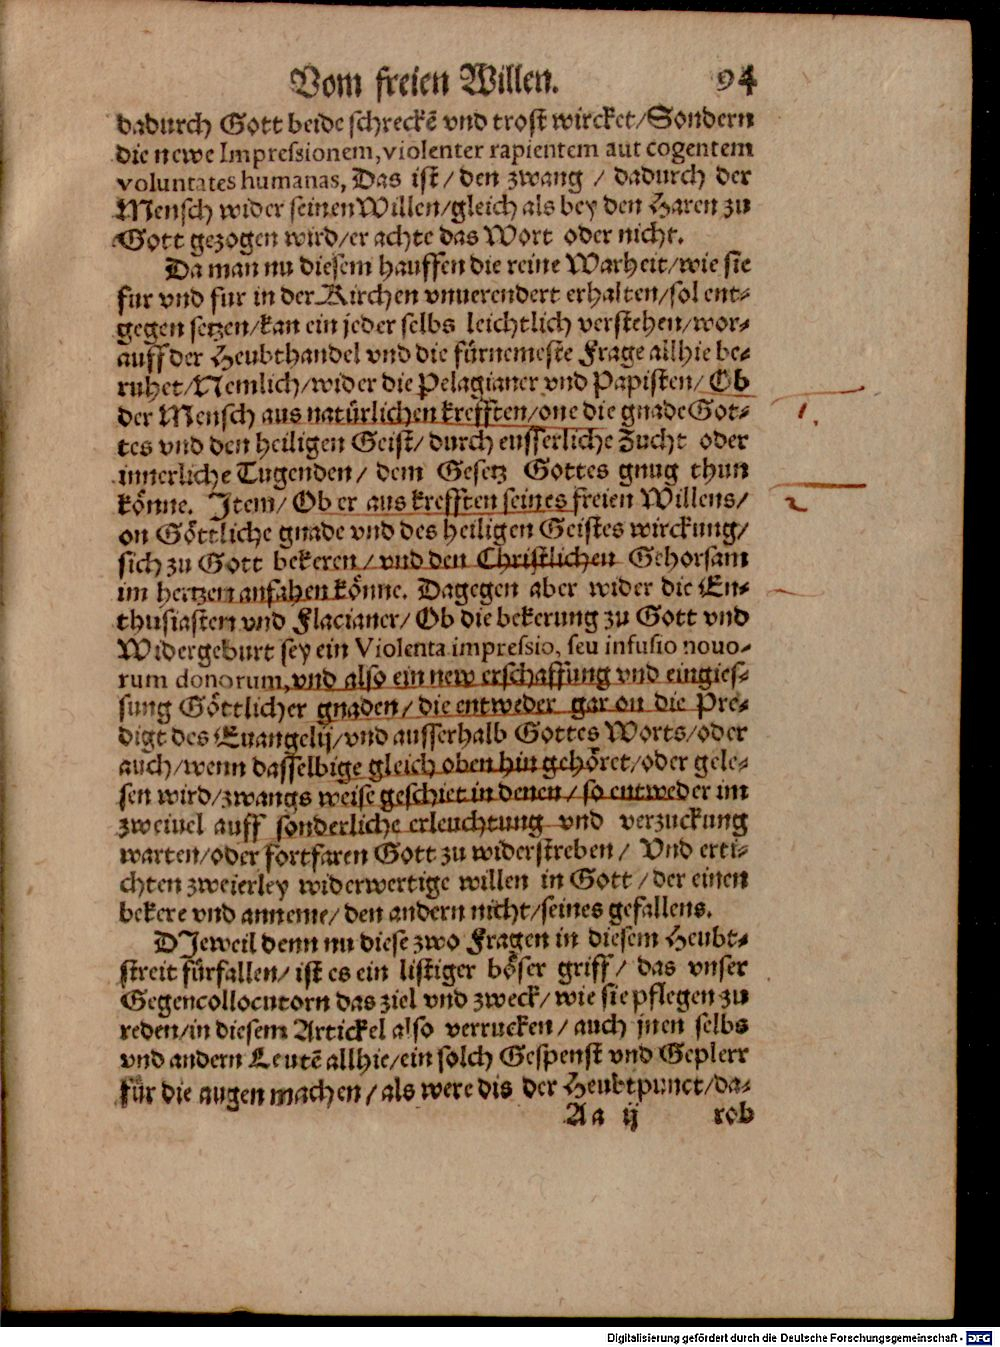 Vom freien Willen. 94
dadurch Gott beide schreckē vnd trost wircket/Sondern
die newe Impressionem, violenter rapientem aut cogentem
voluntates humanas, Das ist/ den zwang / dadurch der
Mensch wider seinen Willen/gleich als bey den Haren zu
Gott gezogen wird/er achte das Wort oder nicht.
Da man nu diesem hauffen die reine Warheit/wie sie
fur vnd fur in der Kirchen vnuerendert erhalten/sol ent-
gegen setzen/kan ein jeder selbs leichtlich verstehen/wor-
auff der Heubthandel vnd die fürnemeste Frage allhie be-
ruhet/Nemlich/wider die Pelagianer vnd Papisten/ Ob
der Mensch aus natürlichen krefften/one die gnade Got-
1.
tes vnd den heiligen Geist/ durch eusserliche Zucht oder
innerliche Tugenden/ dem Gesetz Gottes gnug thun
könne. Item/ Ob er aus krefften seines freien Willens/
2
on Göttliche gnade vnd des heiligen Geistes wirckung/
sich zu Gott bekeren/vnd den Christlichen Gehorsam
im hertzen anfahen könne. Dagegen aber wider die En-
thusiasten vnd Flacianer/ Ob die bekerung zu Gott vnd
Widergeburt sey ein Violenta impressio, seu infusio nouo-
rum donorum, vnd also ein new erschaffung vnd eingies-
sung Göttlicher gnaden/ die entweder gar on die Pre-
digt des Euangelij/vnd ausserhalb Gottes Worts/oder
auch/wenn dasselbige gleich oben hin gehöret/oder gele-
sen wird/zwangs weise geschiet in denen/ so entweder im
zweiuel auff sonderliche erleuchtung vnd verzuckung
warten/oder fortfaren Gott zu widerstreben/ Vnd erti-
chten zweierley widerwertige willen in Gott/der einen
bekere vnd anneme/den andern nicht/seines gefallens.
DIeweil denn nu diese zwo Fragen in diesem Heubt-
streit fürfallen/ ist es ein listiger böser griff/ das vnser
Gegencollocutorn das ziel vnd zweck/wie sie pflegen zu
reden/in diesem Artickel also verrucken/ auch jnen selbs
vnd andern Leutē allhie/ein solch Gespenst vnd Geplerr
für die augen machen/als were dis der Heubtpunct/da-
Aa ij rob
Digitalisierung gefördert durch die Deutsche Forschungsgemeinschaft - DFG